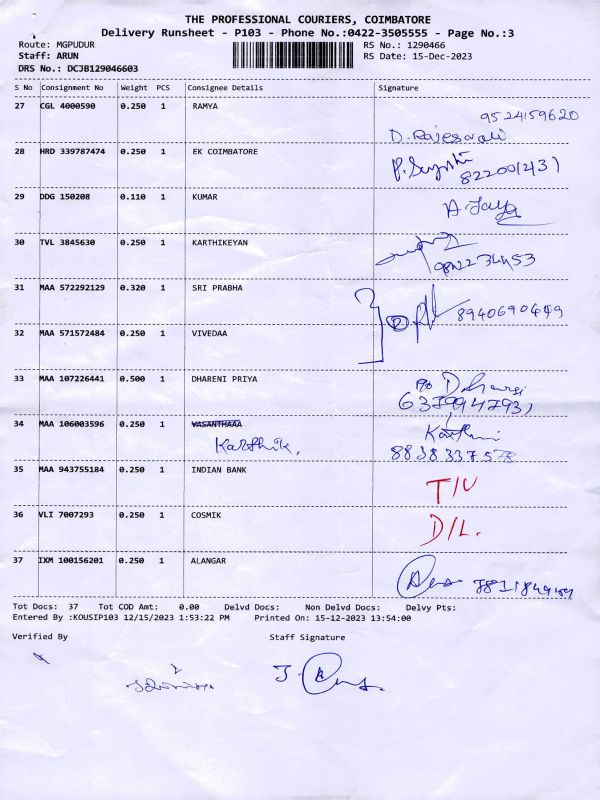 THE PROFESSIONAL COURIERS, COIMBATORE
Delivery Runsheet - P103 - Phone No.:0422-3505555 - Page No.:3
Route: MGPUDUR RS No.: 1290466
Staff: ARUN RS Date: 15-Dec-2023
DRS No.: DCJB129046603
S No Consignment No Weight PCS Consignee Details Signature
27 CGL 4000590 0.250 1 RAMYA 9524159620
D. Rajeswari
28 HRD 339787474 0.250 1 EK COIMBATORE
29 DDG 150208 0.110 1 KUMAR A. Jaya
30 TVL 3845630 0.250 1 KARTHIKEYAN
31 MAA 572292129 0.320 1 SRI PRABHA
32 MAA 571572484 0.250 1 VIVEDAA
33 MAA 107226441 0.500 1 DHARENI PRIYA
34 MAA 106003596 0.250 1 VASANTHAAA
Karthik.
35 MAA 943755184 0.250 1 INDIAN BANK T/U
36 VLI 7007293 0.250 1 COSMIK D/L.
37 IXM 100156201 0.250 1 ALANGAR
Tot Docs: 37 Tot COD Amt: 0.00 Delvd Docs: Non Delvd Docs: Delvy Pts:
Entered By :KOUSIP103 12/15/2023 1:53:22 PM Printed On: 15-12-2023 13:54:00
Verified By Staff Signature